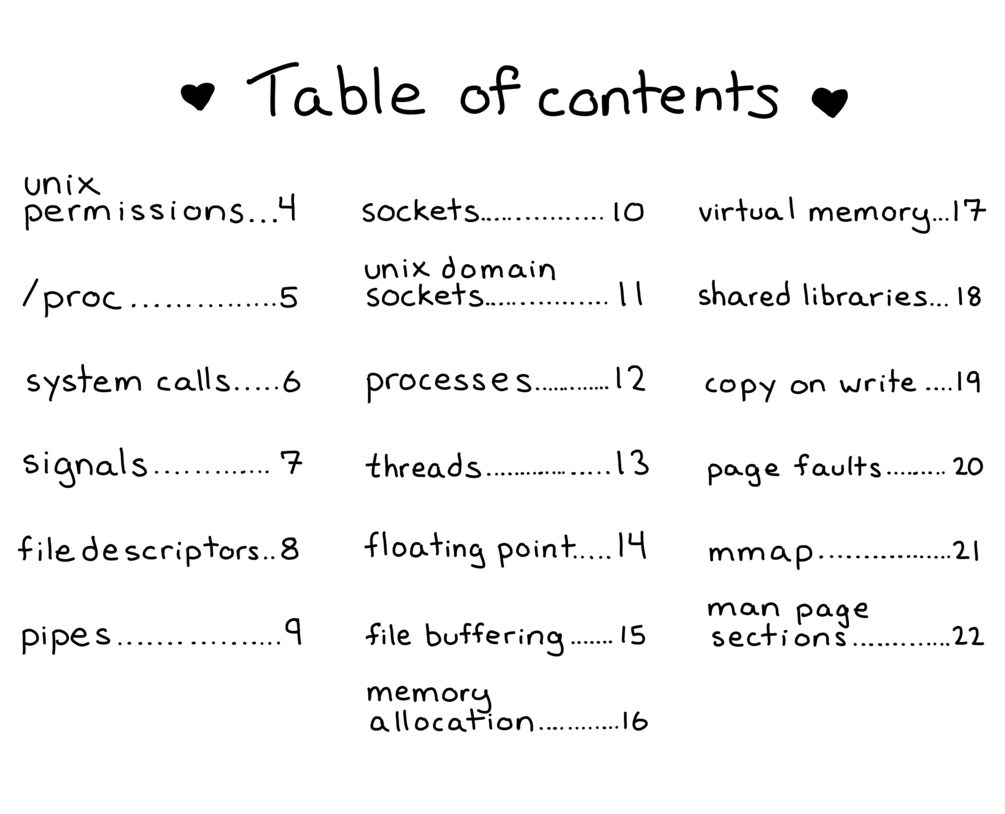 ♥ Table of contents ♥
unix
permissions...4
/proc...............5
system calls.....6
signals............. 7
file descriptors..8
pipes.................9
sockets.................. 10
unix domain
sockets.................. 11
processes.............12
threads..................13
floating point.....14
file buffering.......15
memory
allocation............16
virtual memory...17
shared libraries...18
copy on write ....19
page faults......... 20
mmap.................21
man page
sections.............22